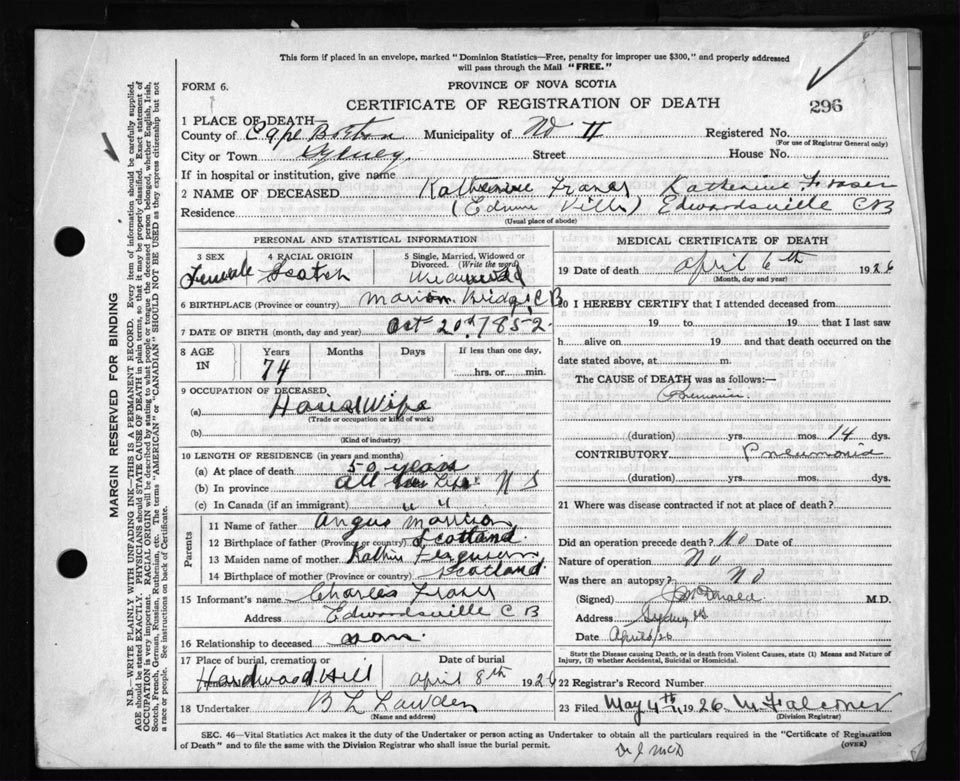 This form if placed in an envelope, marked "Dominion Statistics—Free, penalty for improper use $300," and properly addressed
will pass through the Mail "FREE."
FORM 6.
PROVINCE OF NOVA SCOTIA
CERTIFICATE OF REGISTRATION OF DEATH
296
1 PLACE OF DEATH—
County of Cape Breton Municipality of No 11 Registered No.
(For use of Registrar General only)
City or Town Sydney Street House No.
If in hospital or institution, give name
2 NAME OF DECEASED Katherine Fraser Katherine Fraser
Residence Edwardsville C B
(Usual place of abode)
PERSONAL AND STATISTICAL INFORMATION
3 SEX 4 RACIAL ORIGIN 5 Single, Married, Widowed or
Divorced. (Write the word)
Female Scotch Widowed
6 BIRTHPLACE (Province or country) Marion Bridge C B
7 DATE OF BIRTH (month, day and year) Oct 20th 1852
8 AGE IN Years Months Days If less than one day,
74 hrs. or min.
9 OCCUPATION OF DECEASED
(a) House Wife
(Trade or occupation or kind of work)
(b)
(Kind of industry)
10 LENGTH OF RESIDENCE (in years and months)
(a) At place of death 50 years
(b) In province all her Life N S
(c) In Canada (if an immigrant) " "
Parents
11 Name of father Angus Morrison
12 Birthplace of father (Province or country) Scotland
13 Maiden name of mother Kathie Ferguson
14 Birthplace of mother (Province or country) Scotland
15 Informant's name Charles Fraser
Address Edwardsville C B
16 Relationship to deceased son
17 Place of burial, cremation or removal Date of burial
Hardwood Hill April 8th 1926
18 Undertaker
(Name and address)
MEDICAL CERTIFICATE OF DEATH
19 Date of death April 6th 1926
(Month, day and year)
20 I HEREBY CERTIFY that I attended deceased from
19 to 19 that I last saw
h alive on 19 and that death occurred on the
date stated above, at m.
The CAUSE of DEATH was as follows:—
(duration) yrs. mos. 14 dys.
CONTRIBUTORY Pneumonia
(duration) yrs. mos. dys.
21 Where was disease contracted if not at place of death?
Did an operation precede death? No Date of
Nature of operation No
Was there an autopsy? No
(Signed) McDonald M.D.
Address Sydney NS
Date April 6/26
State the Disease causing Death, or in death from Violent Causes, state (1) Means and Nature of
Injury, (2) whether Accidental, Suicidal or Homicidal.
22 Registrar's Record Number
23 Filed May 4th 1926 M Falconer
(Division Registrar)
SEC. 46—Vital Statistics Act makes it the duty of the Undertaker or person acting as Undertaker to obtain all the particulars required in the "Certificate of Registration
of Death" and to file the same with the Division Registrar who shall issue the burial permit.
(OVER)
Dr J McD
MARGIN RESERVED FOR BINDING
N.B.—WRITE PLAINLY WITH UNFADING INK—THIS IS A PERMANENT RECORD. Every item of information should be carefully supplied.
AGE should be stated EXACTLY. PHYSICIANS should STATE CAUSE OF DEATH in plain terms, so that it may be properly classified. Exact statement of
OCCUPATION is very important. RACIAL ORIGIN will be described by stating to what people or tongue the deceased person belonged, whether English, Irish,
Scotch, French, German, Russian, Ruthenian, etc. The terms "AMERICAN" or "CANADIAN" SHOULD NOT BE USED as they express citizenship but not
a race or people. See instructions on back of Certificate.